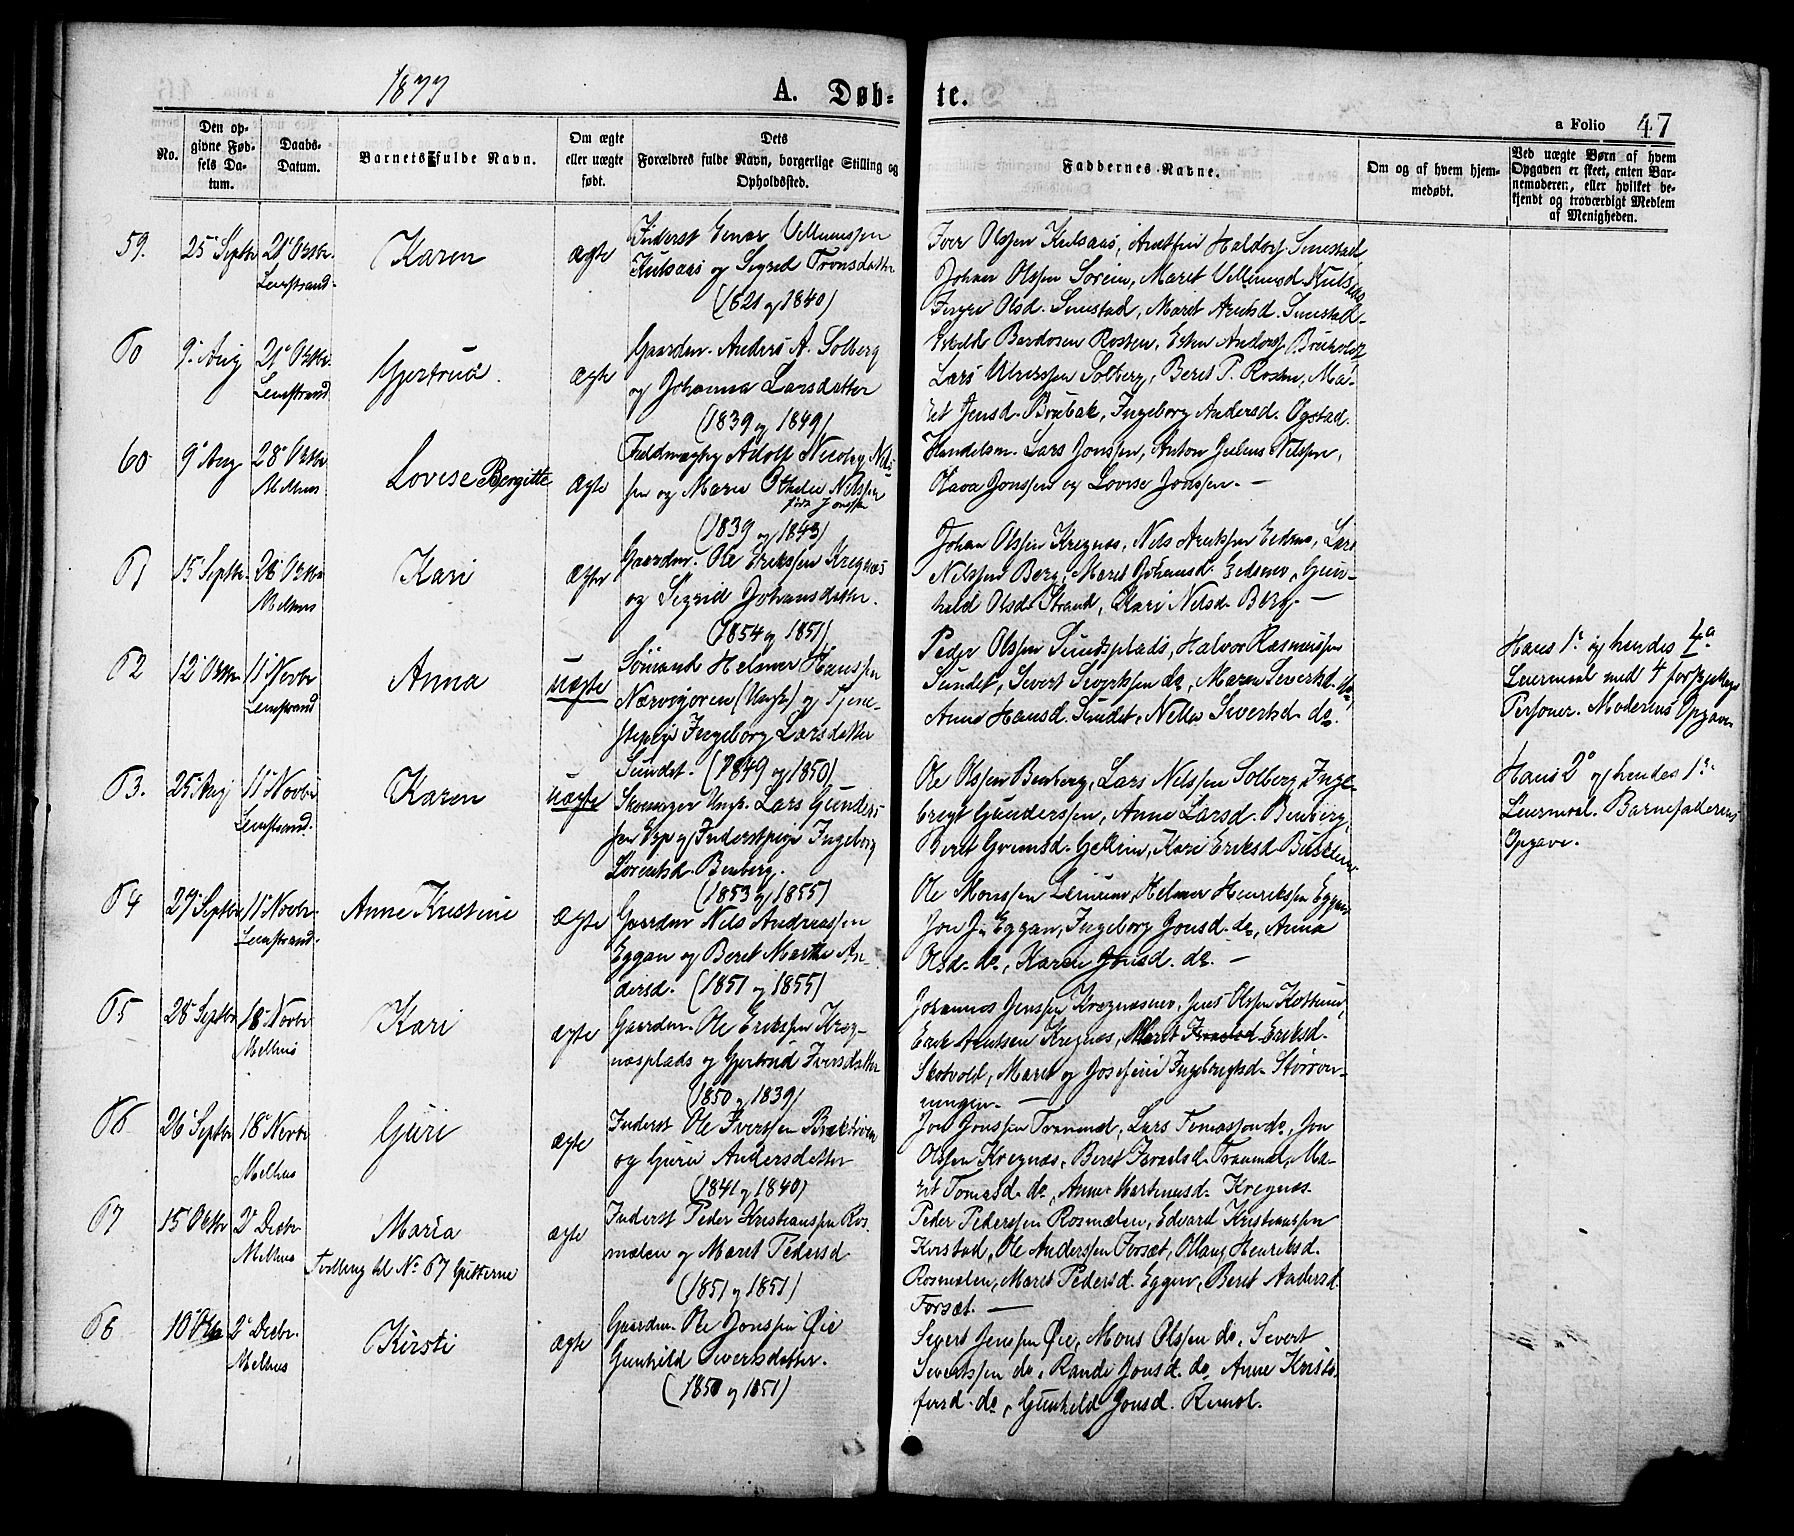 1877
A. Døb-
te.
a Folio 47
No.
Den op-
givne Fød-
sels Da-
tum.
Daabs-
Datum.
Barnets fulde Navn.
Om ægte
eller uægte
født.
Dets
Forældres fulde Navn, borgerlige Stilling og
Opholdssted.
Faddernes Navne.
Om og af hvem hjem-
medøbt.
Ved uægte Børn af hvem
Opgaven er skeet, enten Bar-
nemoderen, eller hvilket be-
kjendt og troværdigt Medlem
af Menigheden.
59.
25 Septbr
21 Octbr.
Lenstrand.
Karen
ægte
Inderst Einar Vellumsen
Kulsaas og Sigrid Tronsdatter
(1821 og 1840)
Iver Olssen Kulsaas, Arntfin Haldors. Smestad,
Johan Olssen Soreim, Maret Vellumsd. Kulsaas
Ingri Olsd. Smestad, Maret Arntsd. Smestad
60
9 Aug
21 Octbr.
Lenstrand
Gjertrud.
ægte
Gaardm. Anders A. Solberg
og Johanna Larsdatter
(1839 og 1849)
Bardosen Rosten, Esten Anders.
Lars Ulrikssen Solberg, Beret P. Rosten, Ma-
ret Jensd. Brubak, Ingeborg Andersd. Øgstad.
60
9 Aug
28 Octbr
Melhus
Lovise Bergitte
ægte
Fuldmægtig Adolf Nicolay Nils-
sen og Marie Othelie Nilssen
født Jonssen
(1839 og 1843)
Handelsm. Lars Jonssen, Anton Julius Nilssen,
Hava Jonssen og Lovise Jonssen. —
61
15 Septbr.
28 Octbr
Melhus
Kari
ægte
Gaardm. Ole Erikssen Kregnæs
og Sigrid Johansdatter.
(1854 og 1851)
Johan Olssen Kregnæs, Nils Arntssen Eidsmo, Lars
Nilssen Berg, Maret Johansd. Eidsmo, Gun-
hild Olsd. Strand, Kari Nilsd. Berg. —
62
12 Octbr
11 Novbr
Lenstrand
Anna
uægte
Sømand Helmer Hanssen
Nærvigøren (Ungk) og Tjene-
stepige Ingeborg Larsdatter
Sundet. (1849 og 1850)
Peder Olssen Sundsplads, Halvor Rasmussen
Sundet, Sivert Sivertssen do, Maren Sivertsd. do
Anne Hansd. Sundet, Nella Sivertsd. do.
Hans 1ste og hendes 4de
Leiermaal med 4 forskjellige
Personer. Moderens Opgave
63.
25 Aug
11 Novbr
Lenstrand.
Karen
uægte
Skomager Ungk. Lars Gunders-
sen Esp og Inderstpige Ingeborg
Lorentsd. Benberg.
(1853 og 1855)
Ole Olssen Benberg, Lars Nilssen Solberg, Inge-
brigt Gunderssen, Anne Larsd. Benberg,
Beret Gremsd. Gellein, Kari Eriksd.
Hans 2de og hendes 1ste
Leiermaal. Barnefaderens
Opgave.
64
29 Septbr
11 Novbr.
Lenstrand.
Anne Kristine
ægte
Gaardm Nils Andreassen
Eggan og Beret Marthe An-
dersd. (1851 og 1855)
Ole Monssen Lerium, Helmer Henrikssen Eggan
Jon J. Eggan, Ingeborg Jonsd. do, Anna
Olsd. do, Karen Jonsd. do. —
65
28 Septbr
18 Novbr
Melhus
Kari
ægte
Gaardm. Ole Erikssen Kreg-
næsplads og Gjertrud Iversdatter
(1850 og 1839)
Johannes Jenssen Kregnæsmo, Jens Olssen
Erik Arntsen Kregnæs, Maret Eriksd.
Skotvold, Maret og Josefine Ingebrigtsd. Størøv-
ningen. —
66
26 Septbr
18 Novbr
Melhus
Guri
ægte
Inderst Ole Iverssen
og Guru Andersdatter
(1841 og 1840)
Jon Jonssen Tranmæl, Lars Tomassen do, Jon
Olssen Kregnæs, Beret Israelsd. Tranmæl, Ma-
ret Tomasd. do, Anne Martinusd. Kregnæs.
67
15 Octbr
2 Decbr
Melhus
Maria
Tvilling til No 67 Gutterne
ægte
Inderst Peder Kristianssen Ros-
mælen og Maret Pedersd
(1851 og 1851)
Peder Pederssen Rosmælen, Edvard Kristianssen
Kvistad, Ole Anderssen Forsæt, Ollaug Henriksd.
Rosmælen, Maret Pedersd. Eggen, Beret Andersd
Forsæt. —
68
10 Octbr
2 Decbr.
Melhus
Kirsti
ægte
Gaardm. Ole Jonssen Øie
Gunhild Sivertsdatter.
(1850 og 1851)
Sivert Jenssen Øie, Mons Olssen do, Sivert
Sivertssen do, Randi Jonsd. do, Anne Kristo-
fersd. do, Gunhild Jonsd. Rimol.